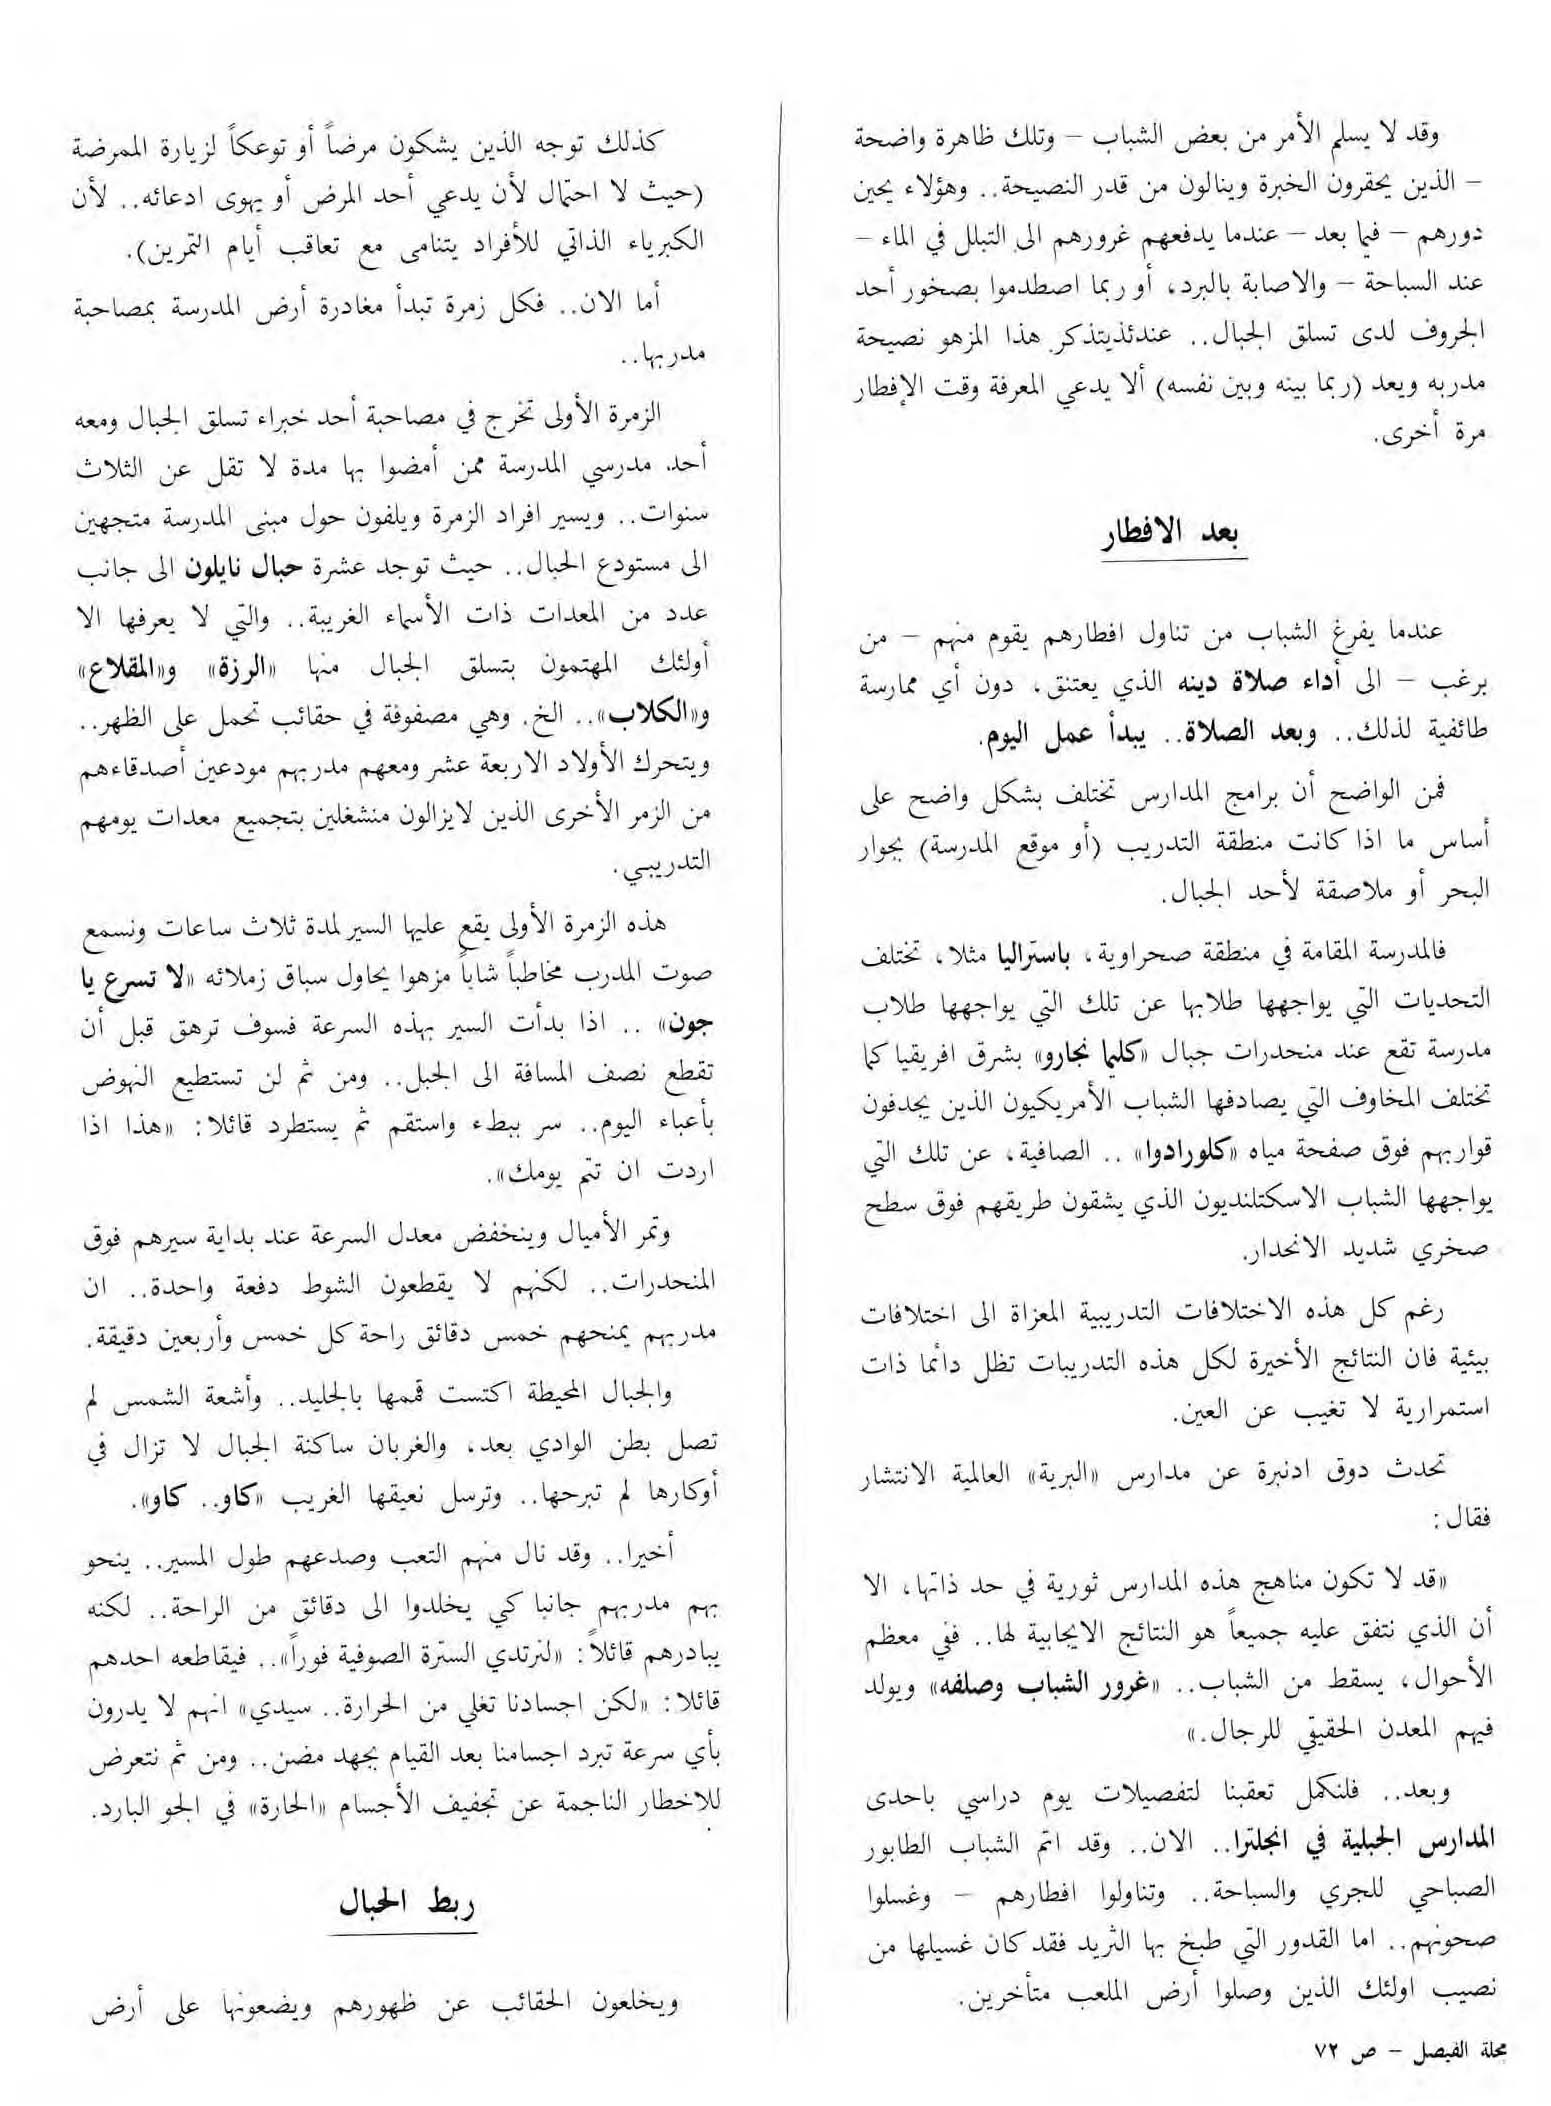 وقد لا يسلم الأمر من بعض الشباب – وتلك ظاهرة واضحة
– الذين يحقرون الخبرة وينالون من قدر النصيحة.. وهؤلاء يحين
دورهم – فيما بعد – عندما يدفعهم غرورهم الى التبلل في الماء –
عند السباحة – والاصابة بالبرد، أو ربما اصطدموا بصخور أحد
الجروف لدى تسلق الجبال.. عندئذيتذكر هذا المزهو نصيحة
مدربه ويعد (ربما بينه وبين نفسه) ألا يدعي المعرفة وقت الإفطار
مرة أخرى.
بعد الافطار
عندما يفرغ الشباب من تناول افطارهم يقوم منهم – من
يرغب – الى أداء صلاة دينه الذي يعتنق، دون أي ممارسة
طائفية لذلك.. وبعد الصلاة.. يبدأ عمل اليوم.
فمن الواضح أن برامج المدارس تختلف بشكل واضح على
أساس ما اذا كانت منطقة التدريب (أو موقع المدرسة) بجوار
البحر أو ملاصقة لأحد الجبال.
فالمدرسة المقامة في منطقة صحراوية، باستراليا مثلا، تختلف
التحديات التي يواجهها طلابها عن تلك التي يواجهها طلاب
مدرسة تقع عند منحدرات جبال «كليما نجارو» بشرق افريقيا كما
تختلف المخاوف التي يصادفها الشباب الأمريكيون الذين يجدفون
قواربهم فوق صفحة مياه «كلورادوا» .. الصافية، عن تلك التي
يواجهها الشباب الاسكتلنديون الذي يشقون طريقهم فوق سطح
صخري شديد الانحدار.
رغم كل هذه الاختلافات التدريبية المعزاة الى اختلافات
بيئية فان النتائج الأخيرة لكل هذه التدريبات تظل دائما ذات
استمرارية لا تغيب عن العين.
تحدث دوق ادنبرة عن مدارس «البرية» العالمية الانتشار
فقال:
«قد لا تكون مناهج هذه المدارس ثورية في حد ذاتها، الا
أن الذي نتفق عليه جميعاً هو النتائج الايجابية لها.. ففي معظم
الأحوال، يسقط من الشباب.. «غرور الشباب وصلفه» ويولد
فيهم المعدن الحقيقي للرجال.»
وبعد.. فلنكمل تعقبنا لتفصيلات يوم دراسي باحدى
المدارس الجبلية في انجلترا.. الان.. وقد اتم الشباب الطابور
الصباحي للجري والسباحة.. وتناولوا افطارهم – وغسلوا
صحونهم.. اما القدور التي طبخ بها الثريد فقد كان غسيلها من
نصيب اولئك الذين وصلوا أرض الملعب متأخرين.
كذلك توجه الذين يشكون مرضاً أو توعكاً لزيارة الممرضة
(حيث لا احتمال لأن يدعي أحد المرض أو يهوى ادعائه.. لأن
الكبرياء الذاتي للأفراد يتنامى مع تعاقب أيام التمرين).
أما الان.. فكل زمرة تبدأ مغادرة أرض المدرسة بمصاحبة
مدربها..
الزمرة الأولى تخرج في مصاحبة أحد خبراء تسلق الجبال ومعه
أحد مدرسي المدرسة ممن أمضوا بها مدة لا تقل عن الثلاث
سنوات.. ويسير افراد الزمرة ويلفون حول مبنى المدرسة متجهين
الى مستودع الحبال.. حيث توجد عشرة حبال نايلون الى جانب
عدد من المعدات ذات الأسماء الغريبة.. والتي لا يعرفها الا
أولئك المهتمون بتسلق الجبال منها «الرزة» و«المقلاع»
و«الكلاب».. الخ. وهي مصفوفة في حقائب تحمل على الظهر..
ويتحرك الأولاد الاربعة عشر ومعهم مدربهم مودعين أصدقاءهم
من الزمر الأخرى الذين لايزالون منشغلين بتجميع معدات يومهم
التدريبي.
هذه الزمرة الأولى يقع عليها السير لمدة ثلاث ساعات ونسمع
صوت المدرب مخاطباً شاباً مزهوا يحاول سباق زملائه «لا تسرع يا
جون» .. اذا بدأت السير بهذه السرعة فسوف ترهق قبل أن
تقطع نصف المسافة الى الجبل.. ومن ثم لن تستطيع النهوض
بأعباء اليوم.. سر ببطء واستقم ثم يستطرد قائلا: «هذا اذا
اردت ان تتم يومك».
وتمر الأميال وينخفض معدل السرعة عند بداية سيرهم فوق
المنحدرات.. لكنهم لا يقطعون الشوط دفعة واحدة.. ان
مدربهم يمنحهم خمس دقائق راحة كل خمس وأربعين دقيقة.
والجبال المحيطة اكتست قممها بالجليد.. وأشعة الشمس لم
تصل بطن الوادي بعد، والغربان ساكنة الجبال لا تزال في
أوكارها لم تبرحها.. وترسل نعيقها الغريب «كاو.. كاو».
أخيرا.. وقد نال منهم التعب وصدعهم طول المسير.. ينحو
بهم مدربهم جانبا كي يخلدوا الى دقائق من الراحة.. لكنه
يبادرهم قائلاً: «لنرتدي السترة الصوفية فوراً».. فيقاطعه احدهم
قائلا: «لكن اجسادنا تغلي من الحرارة.. سيدي» انهم لا يدرون
بأي سرعة تبرد اجسامنا بعد القيام بجهد مضن.. ومن ثم نتعرض
للاخطار الناجمة عن تجفيف الأجسام «الحارة» في الجو البارد.
ربط الحبال
ويخلعون الحقائب عن ظهورهم ويضعونها على أرض
مجلة الفيصل – ص ٧٢